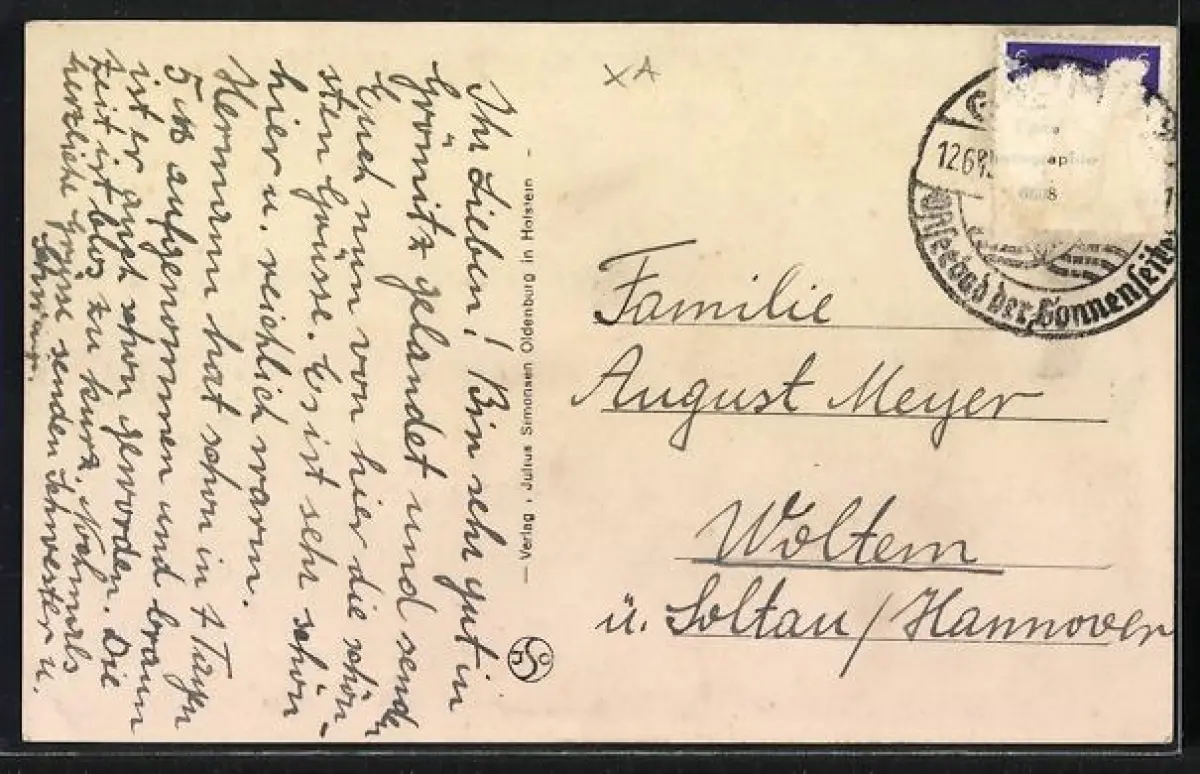 Ihr Lieben! Bin sehr gut in
Grömitz gelandet und sende
Euch nun von hier die schön-
sten Grüsse. Es ist sehr schön
hier u. reichlich warm.
Hermann hat schon in 7 Tagen
5 ℔ aufgenommen und braun
ist er auch schon geworden. Die
Zeit ist blos zu kurz. Nochmals
herzliche Grüsse senden Schwester u.
Schwager.
— Verlag: Julius Simonsen Oldenburg in Holstein —
JSO
XA
6 6
12.6.4
OSTSeebad der Sonnenseite
Familie
August Meyer
Woltem
ü. Soltau/Hannover